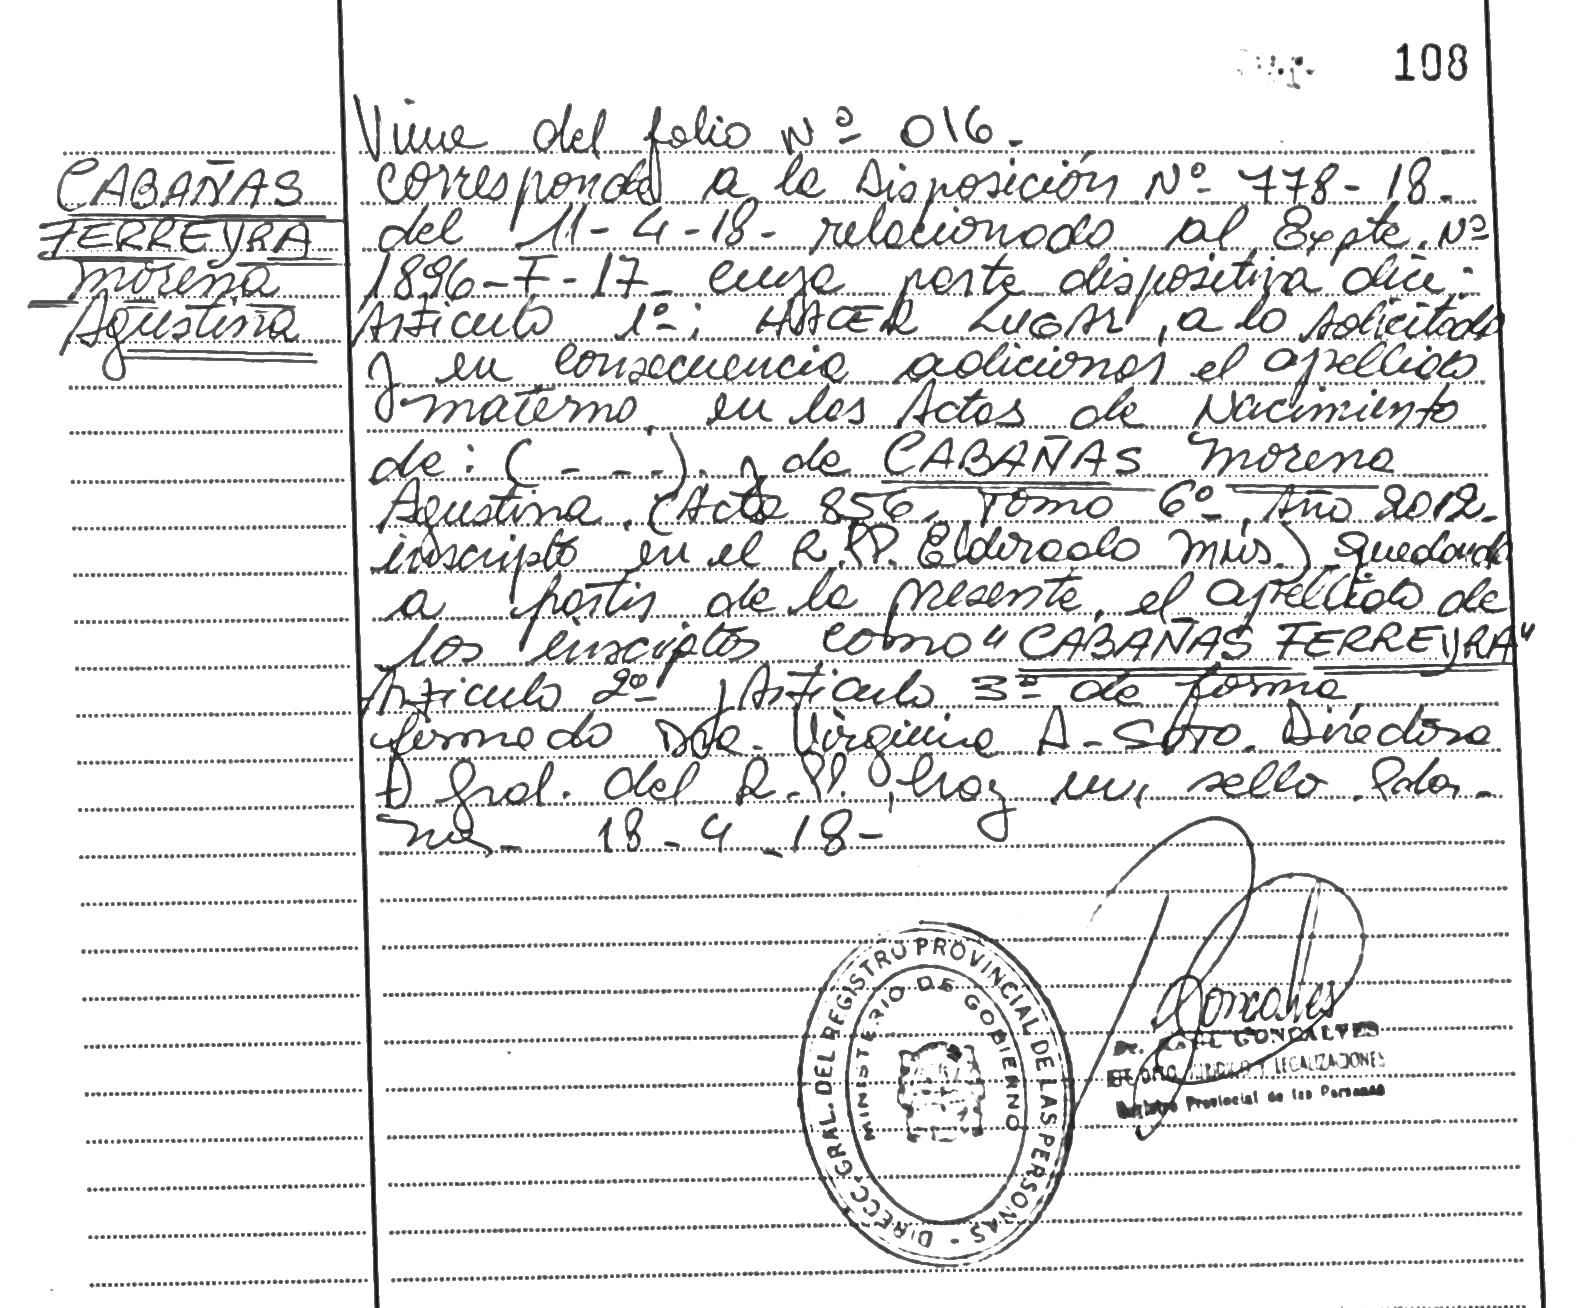 108
CABAÑAS
FERREYRA
Morena
Agustina
Viene del folio Nº 016.
corresponde a la Disposición Nº 778-18.
del 11-4-18- relacionado al Expte. Nº
1896-F-17- cuya parte dispositiva dice:
Artículo 1º: HACER LUGAR, a lo solicitado
y en consecuencia adicionar el apellido
materno, en las Actas de Nacimiento
de: (---). y de CABAÑAS Morena
Agustina. (Acta 856, Tomo 6º, Año 2012-
inscripto en el R.PP. Eldorado Mnes.) quedando
a partir de la presente, el apellido de
los inscriptos como "CABAÑAS FERREYRA"
Artículo 2º y Artículo 3º de forma
firmado Dra. Virginia A. Soto. Directora
Gral. del R.PP., hay un, sello. Pdas.
Mnes- 18-4-18-
DIRECC. GRAL. DEL REGISTRO PROVINCIAL DE LAS PERSONAS -
MINISTERIO DE GOBIERNO
Goncalves
Dr. GONCALVES
Y LEGALIZACIONES
Registro Provincial de las Personas